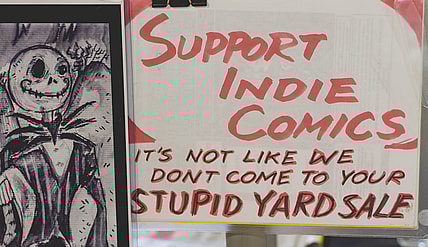 SUPPORT
INDIE
COMICS
IT'S NOT LIKE WE
DONT COME TO YOUR
STUPID YARD SALE